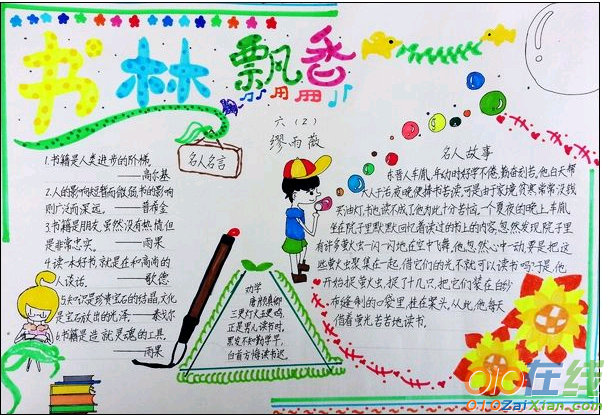 书林飘香
六（2）
缪雨薇
名人名言
1.书籍是人类进步的阶梯
——高尔基
2.人的影响短暂而微弱,书的影响
则广泛而深远。——普希金
3.书籍是朋友,虽然没有热情,但
是非常忠实。——雨果
4.读一本好书,就是在和高尚的
人谈话。——歌德
5.知识是珍贵宝石的结晶,文化
是宝石放出的光泽。——泰戈尔
6.书籍是造就灵魂的工具。
——雨果
劝学
唐 颜真卿
三更灯火五更鸡,
正是男儿读书时。
黑发不知勤学早,
白首方悔读书迟。
名人故事
东晋人车胤,年幼时好学不倦,勤奋刻苦。他白天帮
大人干活,夜晚便捧书苦读。可是由于家境贫寒,常常没钱
买油灯,书也读不成了。他为此十分苦恼。一个夏夜的晚上,车胤
坐在院子里默默回忆着读过的书上的内容,忽然发现院子里
有许多萤火虫一闪一闪地在空中飞舞。他忽然心中一动,要是把这
些萤火虫聚集在一起,借它们的光不就可以读书吗?于是,他
开始捉萤火虫,捉了十几只,把它们装在白纱
布缝制的口袋里,挂在案头。从此,他每天
借着萤光苦苦地读书。
010在线
010ZaiXian.com